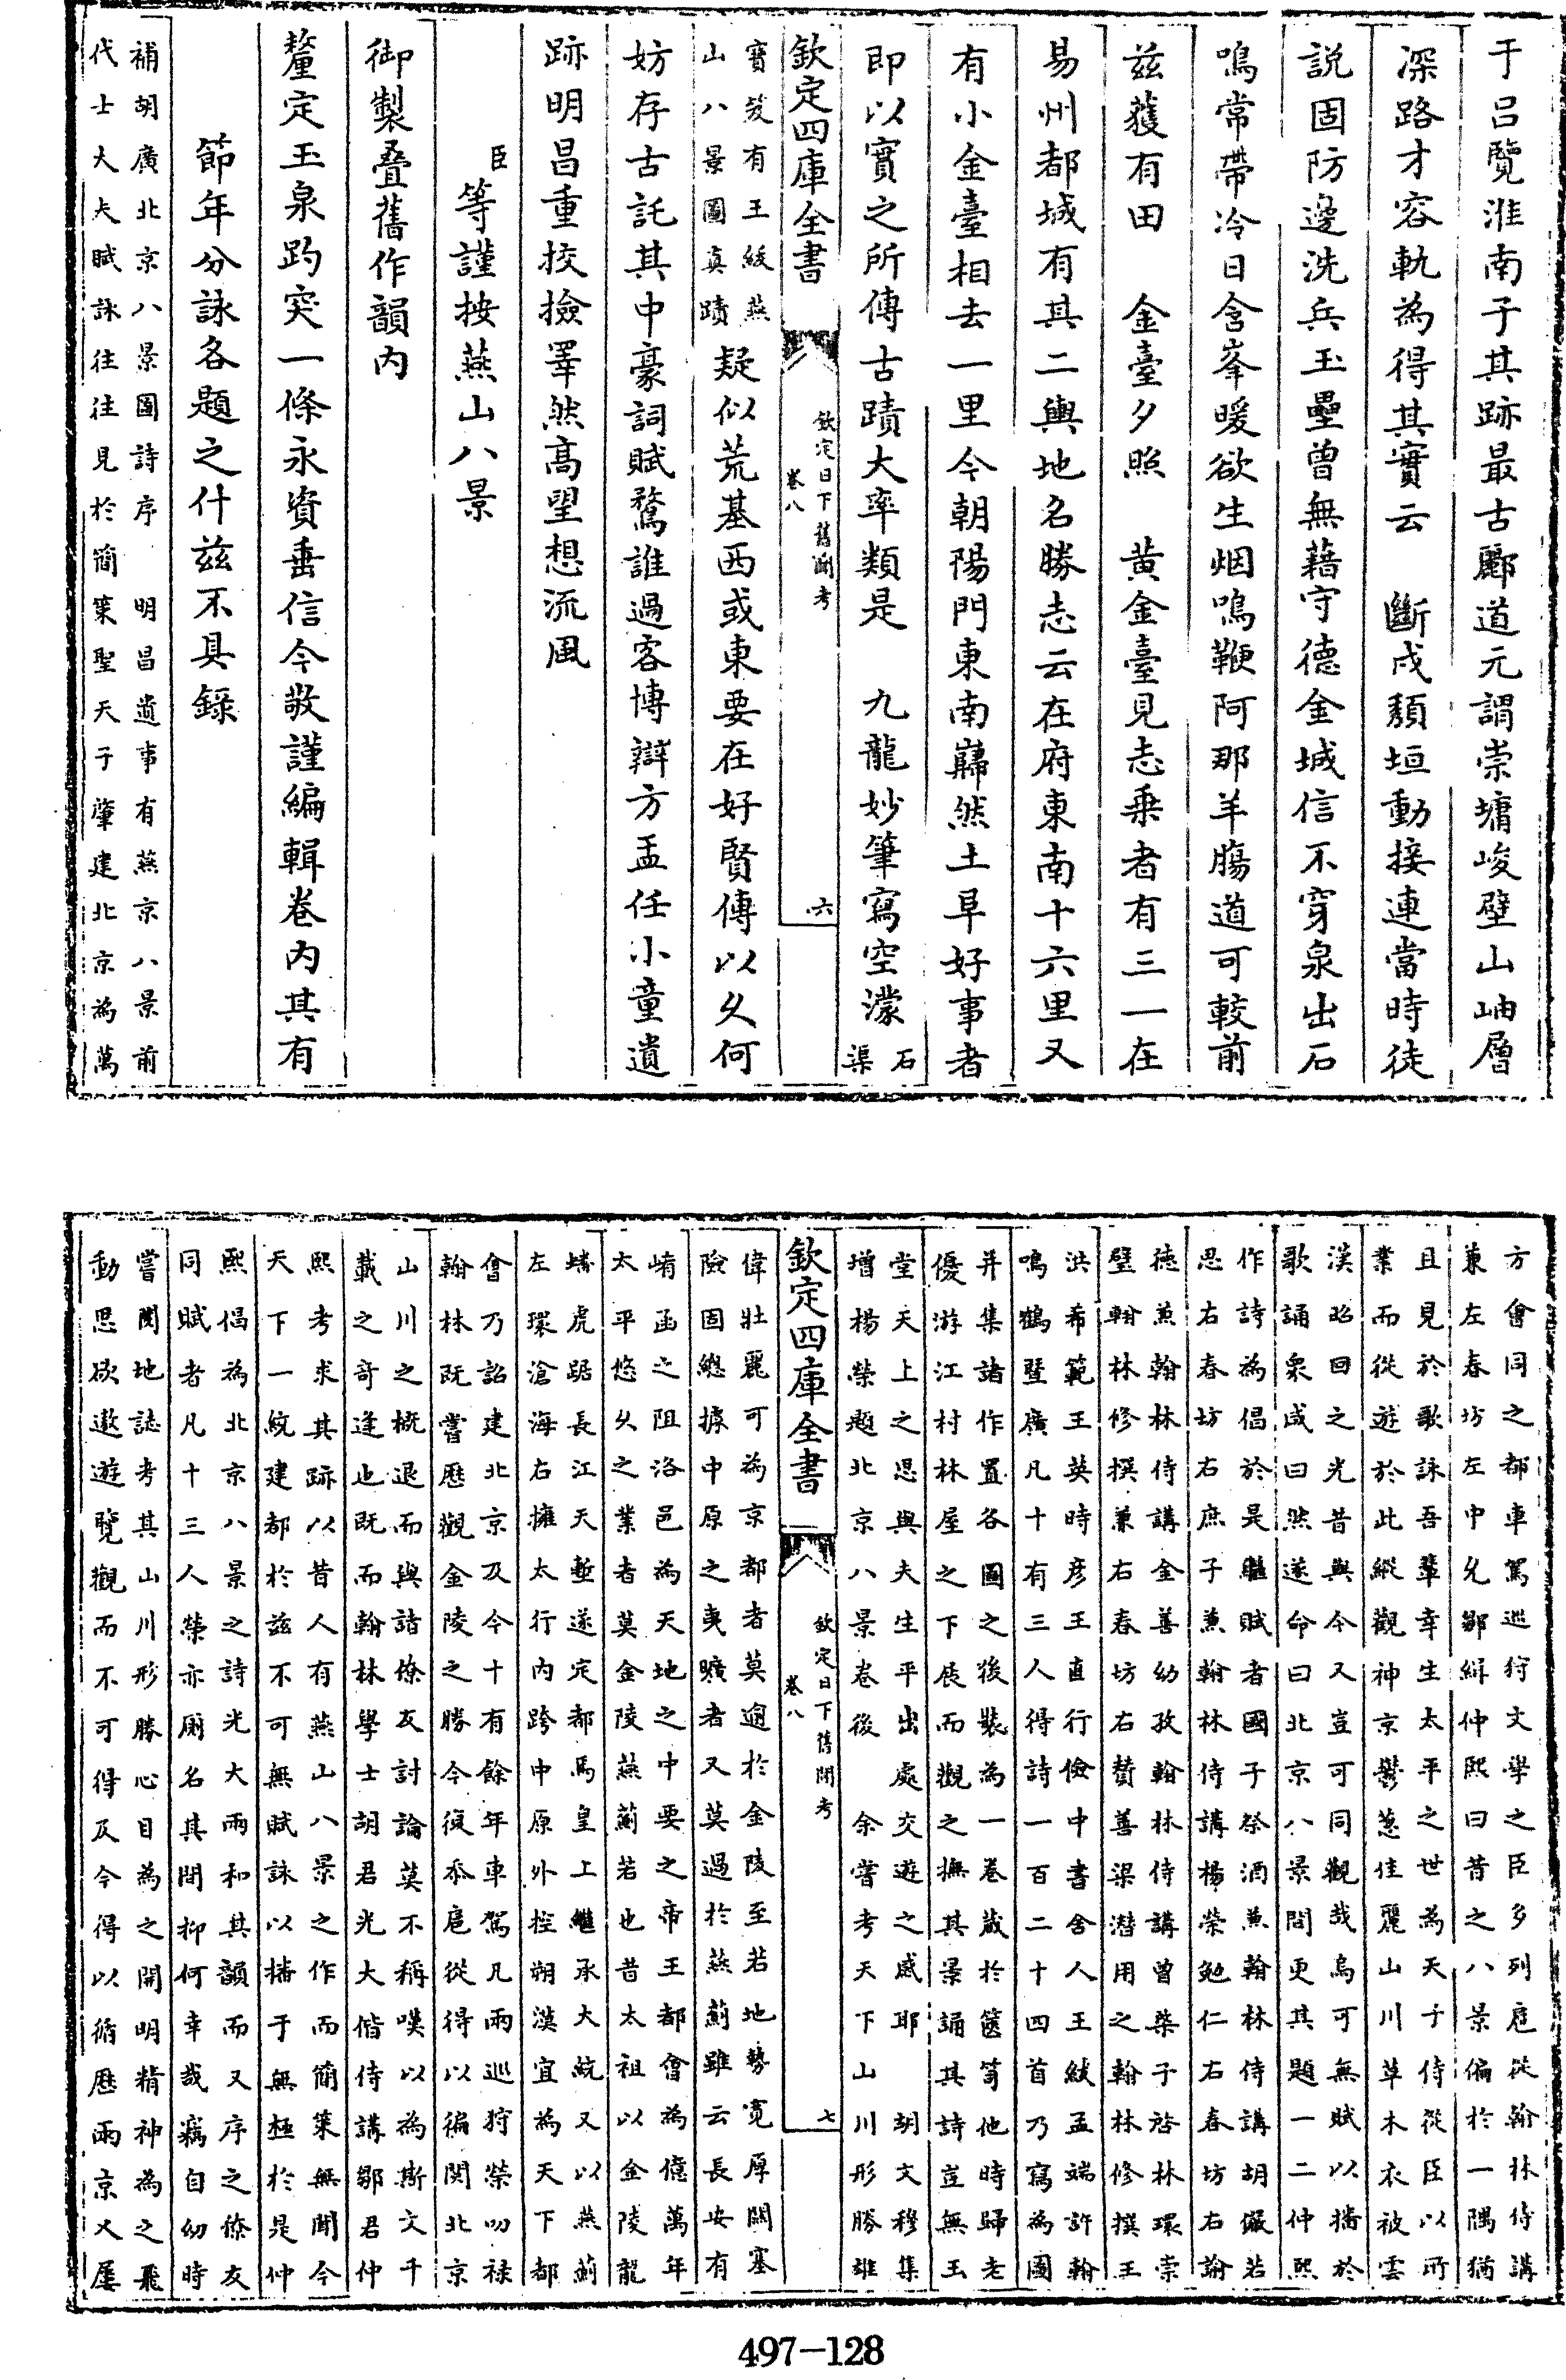 于呂覽淮南子其跡最古酈道元謂崇墉峻壁山岫層
深路才容軌為得其實云　斷戍頹垣動接連當時徒
說固防邊洗兵玉壘曾無藉守德金城信不穿泉出石
鳴常帶冷日含峯暖欲生烟鳴鞭阿那羊腸道可較前
兹獲有田　金臺夕照　黃金臺見志乘者有三一在
易州都城有其二輿地名勝志云在府東南十六里又
有小金臺相去一里今朝陽門東南巋然土阜好事者
即以實之所傳古蹟大率類是　九龍妙筆寫空濛石
渠
欽定四庫全書
欽定日下舊聞考
卷八
六
寶笈有王紱燕
山八景圖真蹟疑似荒基西或東要在好賢傳以久何
妨存古託其中豪詞賦鶩誰過客博辯方盂任小童遺
跡明昌重挍撿睪然高望想流風
臣等謹按燕山八景
御製疊舊作韻內
釐定玉泉趵突一條永資垂信今敬謹編輯卷內其有
節年分詠各題之什兹不具錄
補胡廣北京八景圖詩序　明昌遺事有燕京八景前
代士大夫賦詠往往見於簡策聖天子肇建北京為萬
方會同之都車駕巡狩文學之臣多列扈從翰林侍講
兼左春坊左中允鄒緝仲熙曰昔之八景偏於一隅猶
且見於歌詠吾輩幸生太平之世為天子侍從臣以所
業而從遊於此縱觀神京鬱葱佳麗山川草木衣被雲
漢昭回之光昔與今又豈可同觀哉烏可無賦以播於
歌誦衆咸曰然遂命曰北京八景間更其題一二仲熙
作詩為倡於是繼賦者國子祭酒兼翰林侍講胡儼若
思右春坊右庶子兼翰林侍講楊榮勉仁右春坊右諭
德兼翰林侍講金善幼孜翰林侍講曾棨子啓林環崇
璧翰林修撰兼右春坊右贊善梁潛用之翰林修撰王
洪希範王英時彦王直行儉中書舍人王紱孟端許翰
鳴鶴暨廣凡十有三人得詩一百二十四首乃寫為圖
并集諸作置各圖之後裝為一卷蔵於篋笥他時歸老
優游江村林屋之下展而觀之撫其景誦其詩豈無玉
堂天上之思與夫生平出處交遊之感耶　胡文穆集
増楊榮題北京八景卷後　余嘗考天下山川形勝雄
欽定四庫全書
欽定日下舊聞考
卷八
七
偉壯麗可為京都者莫逾於金陵至若地勢寛厚關塞
險固總據中原之夷曠者又莫過於燕薊雖云長安有
崤函之阻洛邑為天地之中要之帝王都會為億萬年
太平悠久之業者莫金陵燕薊若也昔太祖以金陵龍
蟠虎踞長江天塹遂定都焉皇上繼承大統又以燕薊
左環滄海右擁太行內跨中原外控朔漠宜為天下都
會乃詔建北京及今十有餘年車駕凡兩巡狩榮叨祿
翰林既嘗厯觀金陵之勝今復忝扈從得以徧閱北京
山川之概退而與諸僚友討論莫不稱嘆以為斯文千
載之奇逢也既而翰林學士胡君光大偕侍講鄒君仲
熙考求其跡以昔人有燕山八景之作而簡策無聞今
天下一統建都於兹不可無賦詠以播于無極於是仲
熙倡為北京八景之詩光大兩和其韻而又序之僚友
同賦者凡十三人榮亦厠名其間抑何幸哉竊自幼時
嘗閱地誌考其山川形勝心目為之開明精神為之飛
動思欲遨遊覽觀而不可得及今得以循歷兩京又屢
497-128